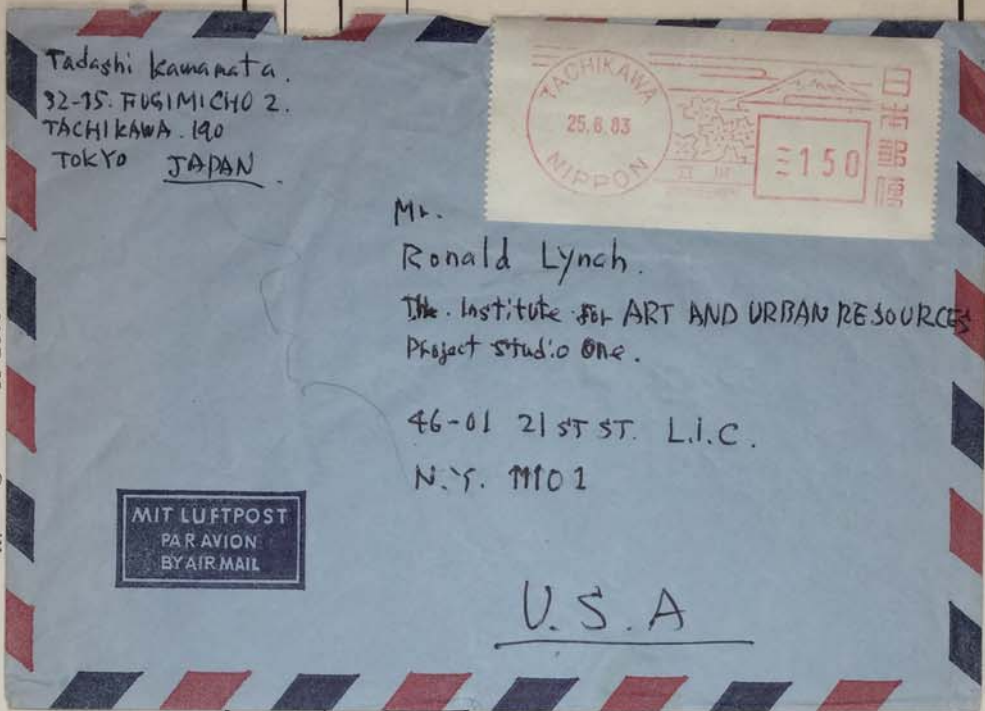 Tadashi Kawamata.
32-35. FUGIMICHO 2.
TACHIKAWA. 190
TOKYO JAPAN.
TACHIKAWA
25.6.83
NIPPON
立川
150
日本郵便
Mr.
Ronald Lynch.
The. Institute for ART AND URBAN RESOURCES
Project Studio One.
46-01 21 ST ST. L.I.C.
N.Y. 11101
MIT LUFTPOST
PAR AVION
BY AIR MAIL
U.S.A